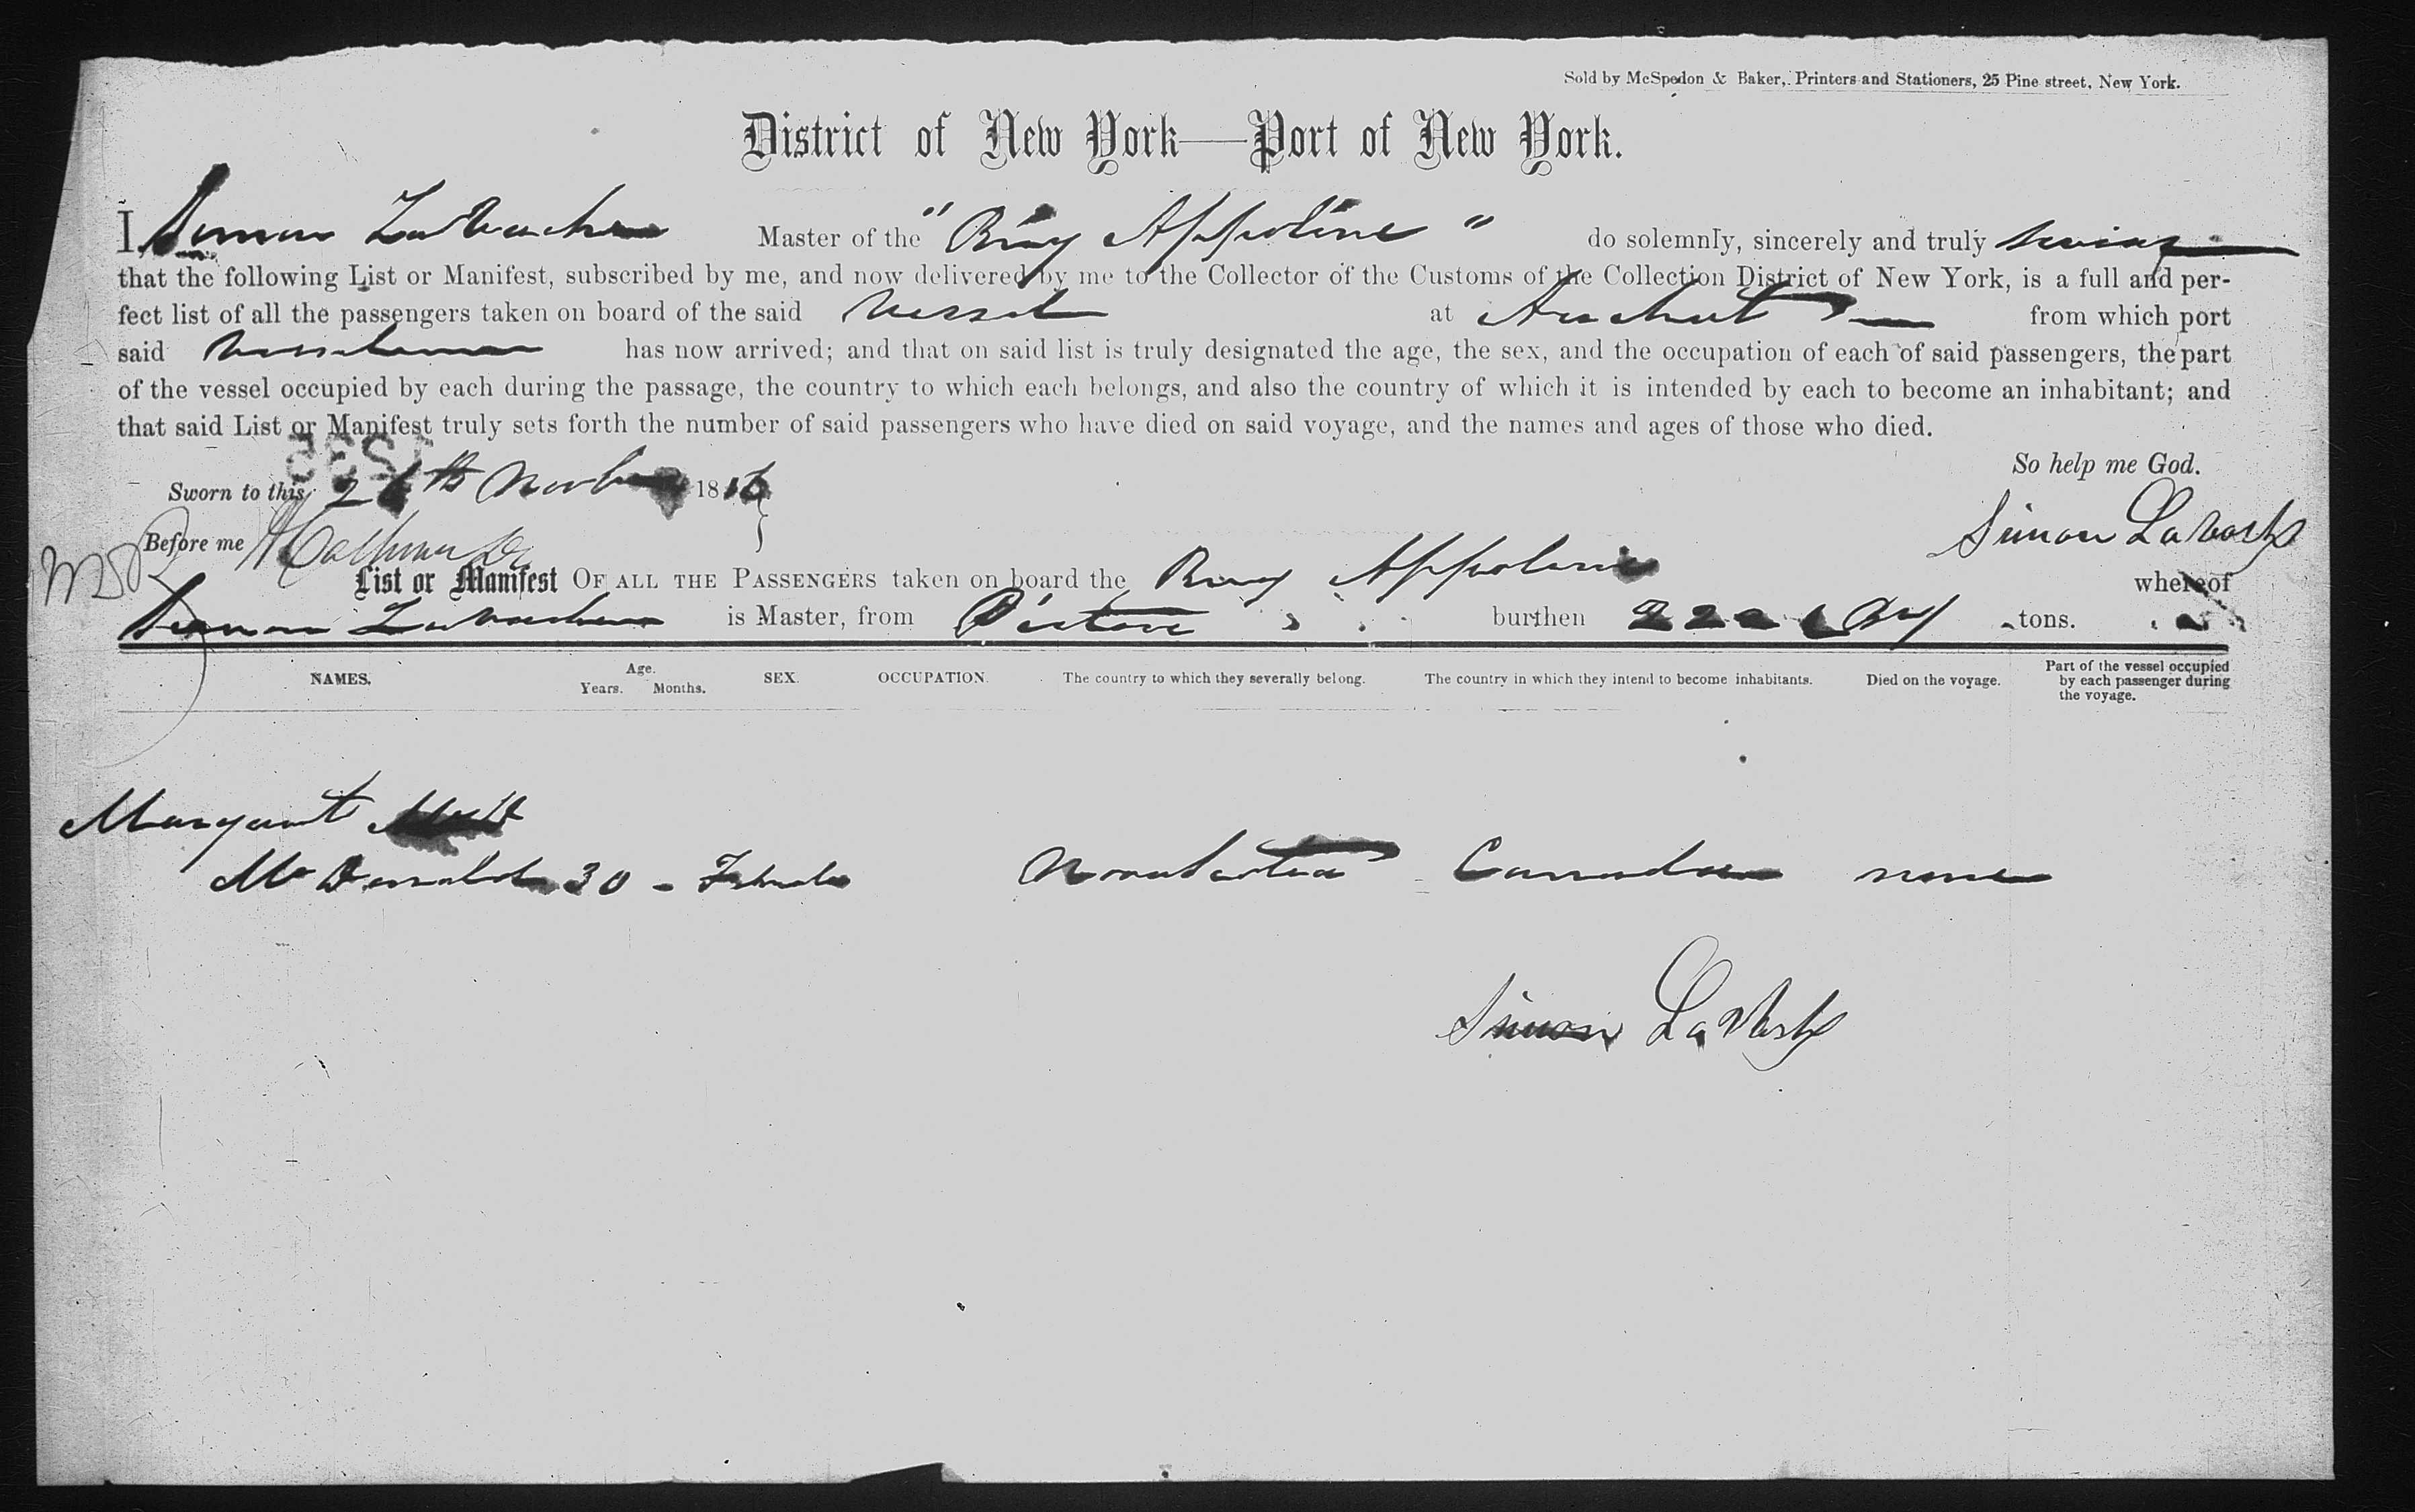 Sold by McSpedon & Baker, Printers and Stationers, 25 Pine street, New York.
District of New York—Port of New York.
I, Simon Master of the "Brig Appoline" do solemnly, sincerely and truly swear
that the following List or Manifest, subscribed by me, and now delivered by me to the Collector of the Customs of the Collection District of New York, is a full and per-
fect list of all the passengers taken on board of the said vessel at Arichat from which port
said has now arrived; and that on said list is truly designated the age, the sex, and the occupation of each of said passengers, the part
of the vessel occupied by each during the passage, the country to which each belongs, and also the country of which it is intended by each to become an inhabitant; and
that said List or Manifest truly sets forth the number of said passengers who have died on said voyage, and the names and ages of those who died.
So help me God.
Sworn to this 18
Before me Simon
List or Manifest OF ALL THE PASSENGERS taken on board the Brig Appoline whereof
Simon is Master, from Pictou burthen tons.
NAMES. Age. Years. Months. SEX. OCCUPATION. The country to which they severally belong. The country in which they intend to become inhabitants. Died on the voyage. Part of the vessel occupied by each passenger during the voyage.
Margaret
McDonald 30 - Female Nova Scotia Canada none
Simon